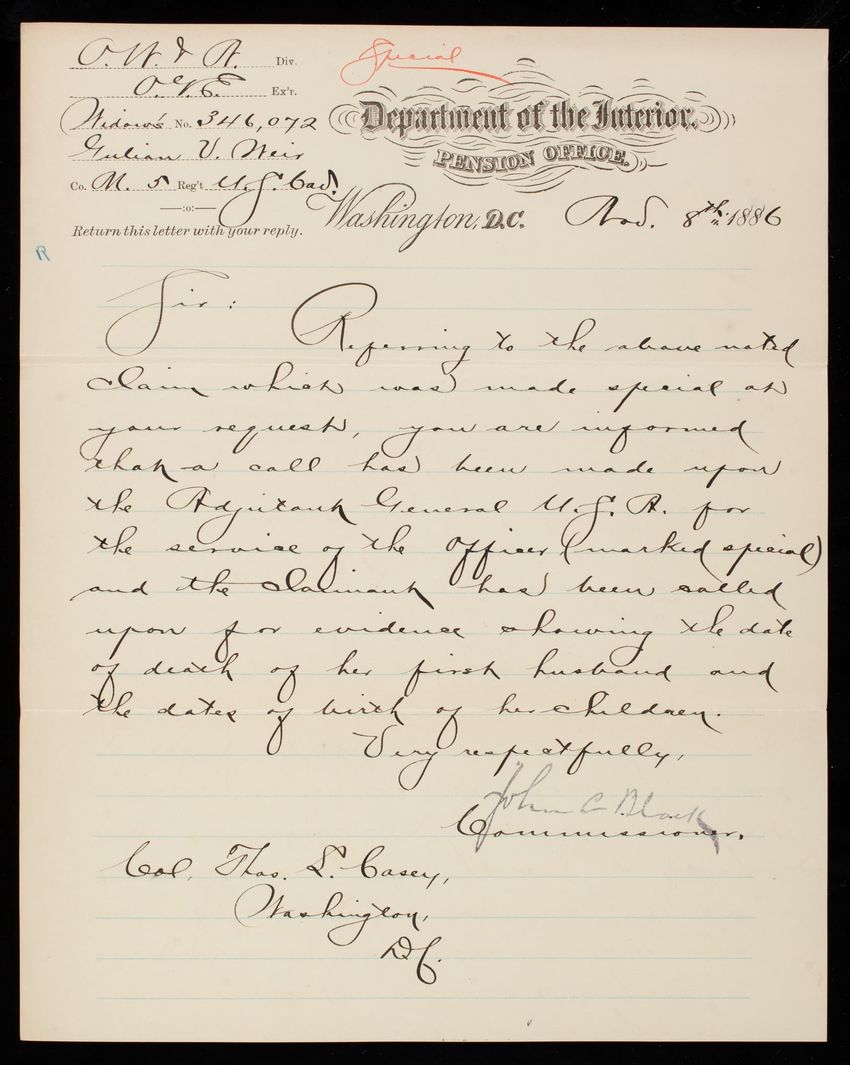 O. W. & N. Div.
O. V. E. Ex'r.
Widow's No. 346,072
Gulian V. Weir
Co. M. 5 Reg't U.S. Cav.
—:o:—
Return this letter with your reply.
Special
Department of the Interior,
PENSION OFFICE,
Washington, D.C. Nov. 8th, 1886
R
Sir:
Referring to the above noted
claim which was made special at
your request, you are informed
that a call has been made upon
the Adjutant General U.S.A. for
the service of the officer (marked special)
and the claimant has been called
upon for evidence showing the date
of death of her first husband and
the dates of birth of her children.
Very respectfully,
John C Black
Commissioner.
Col. Thos. L. Casey,
Washington,
D.C.